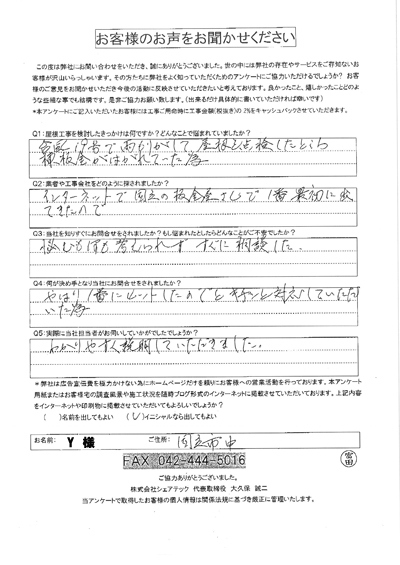 お客様のお声をお聞かせください
この度は弊社にお問い合わせをいただき、誠にありがとうございました。世の中には弊社の存在やサービスをご存知ないお
客様が沢山いらっしゃいます。その方たちに弊社をよく知っていただくためのアンケートにご協力いただけるでしょうか? お客
様のご意見をお聞かせいただき今後の活動に反映させていただきたいと考えております。良かったこと、嬉しかったことどのよ
うな些細な事でも結構です、是非ご協力お願い致します。(出来るだけ具体的に書いていただければ幸いです)
*アンケートにご記入いただいたお客様には工事ご用命時に工事金額(税抜き)の2%をキャッシュバックさせていただきます。
Q1:屋根工事を検討したきっかけは何ですか?どんなことで悩まれていましたか?
台風19号で雨もりがして、屋根を点検したところ
棟板金がはがれていた為
Q2:業者や工事会社をどのように探されましたか?
インターネットで国立の板金屋さんで1番最初に出
てきたので
Q3:当社を知りすぐにお問合せをされましたか?もし悩まれたとしたらどんなことがご不安でしたか?
悩む もすぐに相談した。
Q4:何が決め手となり当社にお問合せをされましたか?
やはり1番にヒットしたのでとキチンと対応していただ
いた為
Q5:実際に当社担当者がお伺いしていかがでしたでしょうか?
わかりやすく説明していただきました。
*弊社は広告宣伝費を極力かけない為にホームページだけを頼りにお客様への営業活動を行っております。本アンケート
用紙またはお客様宅の調査風景や施工状況を随時ブログ形式のインターネットに掲載させていただいております。上記内容
をインターネットや印刷物に掲載させていただいてもよろしいでしょうか?
( )名前を出してもよい (レ)イニシャルなら出してもよい
お名前: Y 様 ご住所: 国立市中
FAX 042-444-5016
ご協力ありがとうございました。
株式会社シェアテック 代表取締役 大久保 誠二
当アンケートで取得したお客様の個人情報は関係法規に基づき厳正に管理いたします。